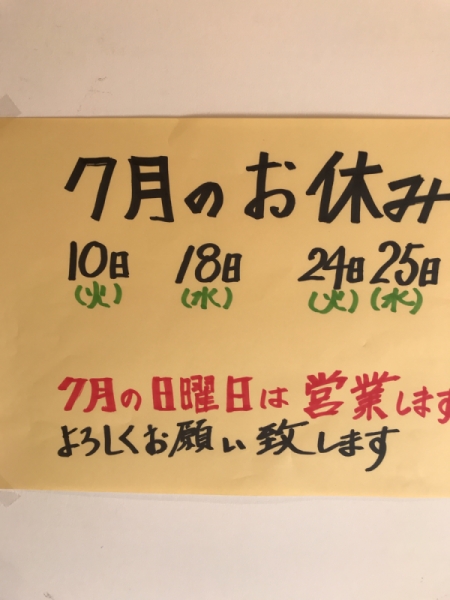 7月のお休み
10日 18日 24日 25日
(火) (水) (火) (水)
7月の日曜日は営業します
よろしくお願い致します